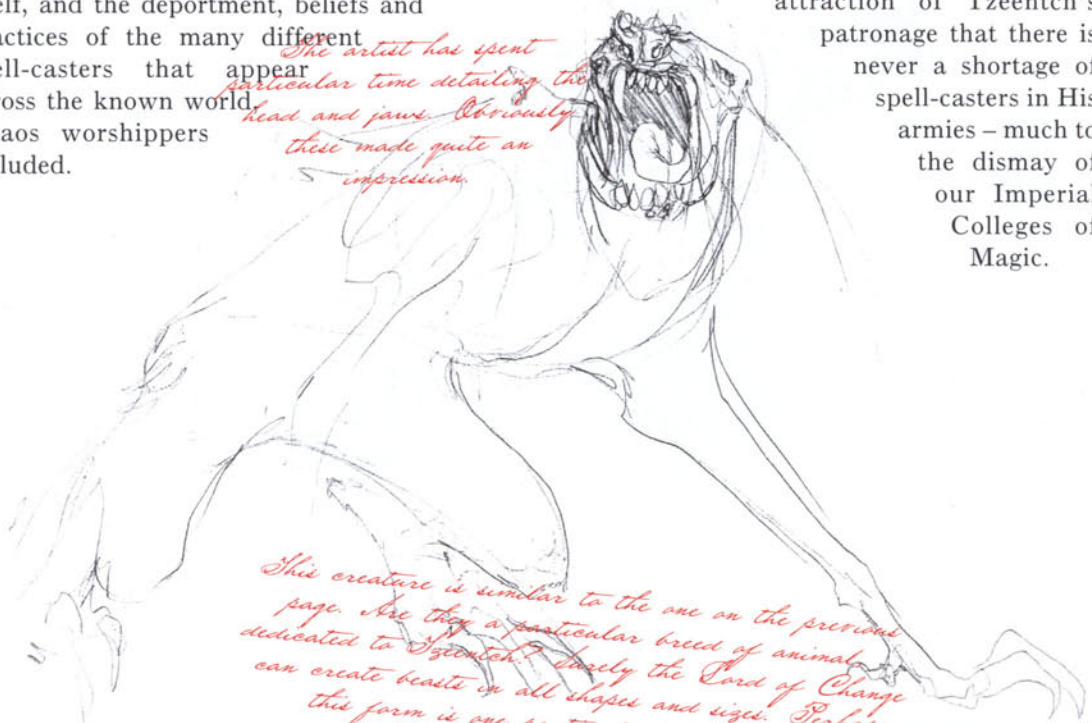 elf, and the deportment, beliefs and
actices of the many different
ell-casters that appear
ross the known world,
aos worshippers
luded.
The artist has spent
particular time detailing the
head and jaws. Obviously
these made quite an
impression.
attraction of Tzeentch's
patronage that there is
never a shortage of
spell-casters in His
armies – much to
the dismay of
our Imperia
Colleges of
Magic.
This creature is similar to the one on the previous
page. Are they a particular breed of animal
dedicated to Tzeentch? Surely the Lord of Change
can create beasts in all shapes and sizes.
this form is one